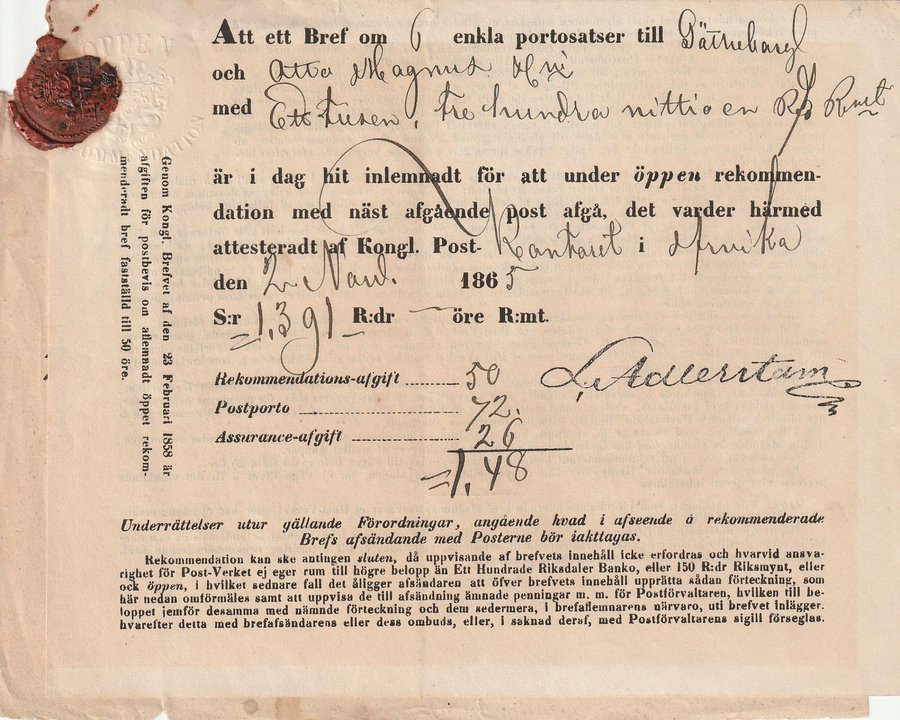 ÖPPEN
Att ett Bref om 6 enkla portosatser till Götheborg
och Otto Magnus
med Ett tusen, tre hundra nittio en Rd Rmt
är i dag hit inlemnadt för att under öppen rekommen-
dation med näst afgående post afgå, det varder härmed
attesteradt af Kongl. Post-Kontoret i Arvika
den 2 Nov. 1865
S:r 1,391 R:dr — öre R:mt.
Rekommendations-afgift 50
Postporto 72.
Assurance-afgift 26
=1,48
L. Adlerstam
Genom Kongl. Brefvet af den 23 Februari 1858 är
afgiften för postbevis om aflemnadt öppet rekom-
menderadt bref fastställd till 50 öre.
Underrättelser utur gällande Förordningar, angående hvad i afseende å rekommenderade
Brefs afsändande med Posterne bör iakttagas.
Rekommendation kan ske antingen sluten, då uppvisande af brefvets innehåll icke erfordras och hvarvid ansva-
righet för Post-Verket ej eger rum till högre belopp än Ett Hundrade Riksdaler Banko, eller 150 R:dr Riksmynt, eller
ock öppen, i hvilket sednare fall det åligger afsändaren att öfver brefvets innehåll upprätta sådan förteckning, som
här nedan omförmäles samt att uppvisa de till afsändning ämnade penningar m. m. för Postförvaltaren, hvilken till be-
loppet jemför desamma med nämnde förteckning och dem sedermera, i brefaflemnarens närvaro, uti brefvet inlägger,
hvarefter detta med brefafsändarens eller dess ombuds, eller, i saknad deraf, med Postförvaltarens sigill förseglas.